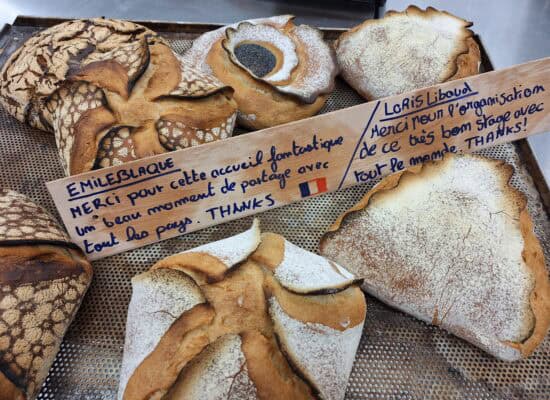 EMILE BLAQUE
MERCI pour cette accueil fantastique
un beau moment de partage avec
tout les pays. THANKS
LORIS Libaud
Merci pour l'organisation
de ce très bon stage avec
tout le monde. THANKS!